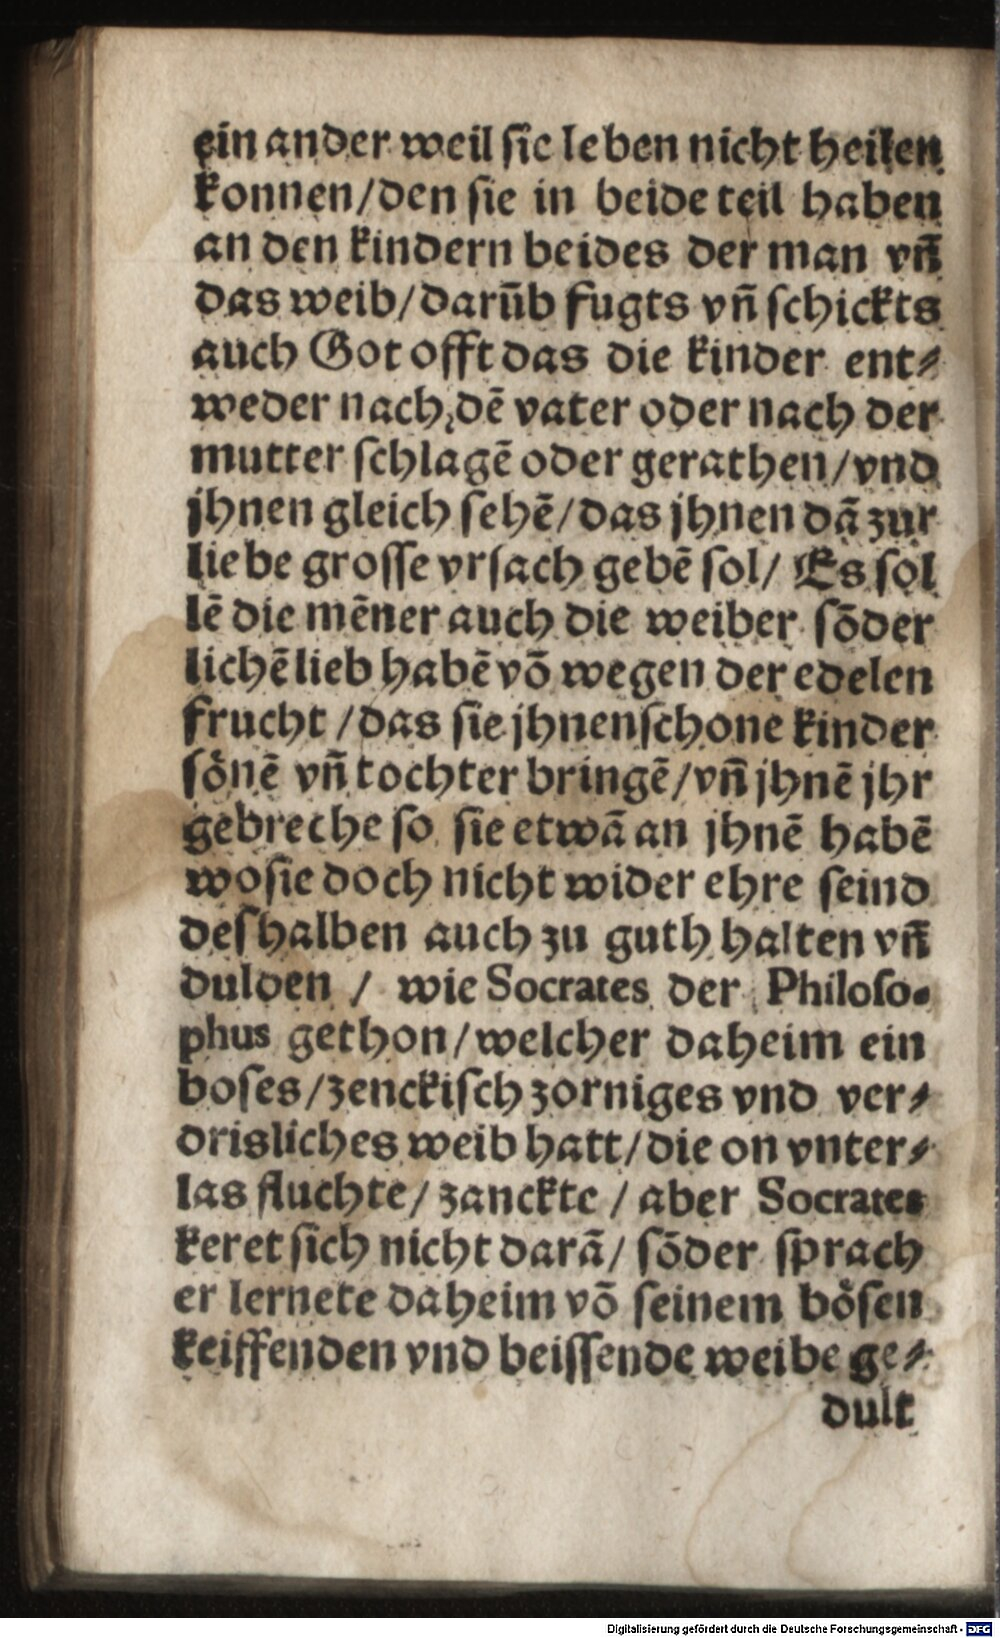 ein ander weil sie leben nicht heiken
konnen/den sie in beide teil haben
an den kindern beides der man vn̄
das weib/darūb fugts vn̄ schickts
auch Got offt das die kinder ent⸗
weder nach dē vater oder nach der
mutter schlagē oder gerathen/vnd
jhnen gleich sehē/das jhnen dā zur
liebe grosse vrsach gebē sol/ Es sol
lē die mēner auch die weiber sōder
lichē lieb habē vō wegen der edelen
frucht /das sie jhnen schone kinder
sönē vn̄ tochter bringē/vn̄ jhnē jhr
gebreche so sie etwā an jhnē habē
wo sie doch nicht wider ehre seind
deshalben auch zu guth halten vn̄
dulden / wie Socrates der Philoso⸗
phus gethon/welcher daheim ein
boses/zenckisch zorniges vnd ver⸗
drisliches weib hatt/die on vnter⸗
las fluchte/ zanckte / aber Socrates
keret sich nicht darā/ sōder sprach
er lernete daheim vō seinem bösen
keiffenden vnd beissende weibe ge⸗
dult
Digitalisierung gefördert durch die Deutsche Forschungsgemeinschaft - DFG